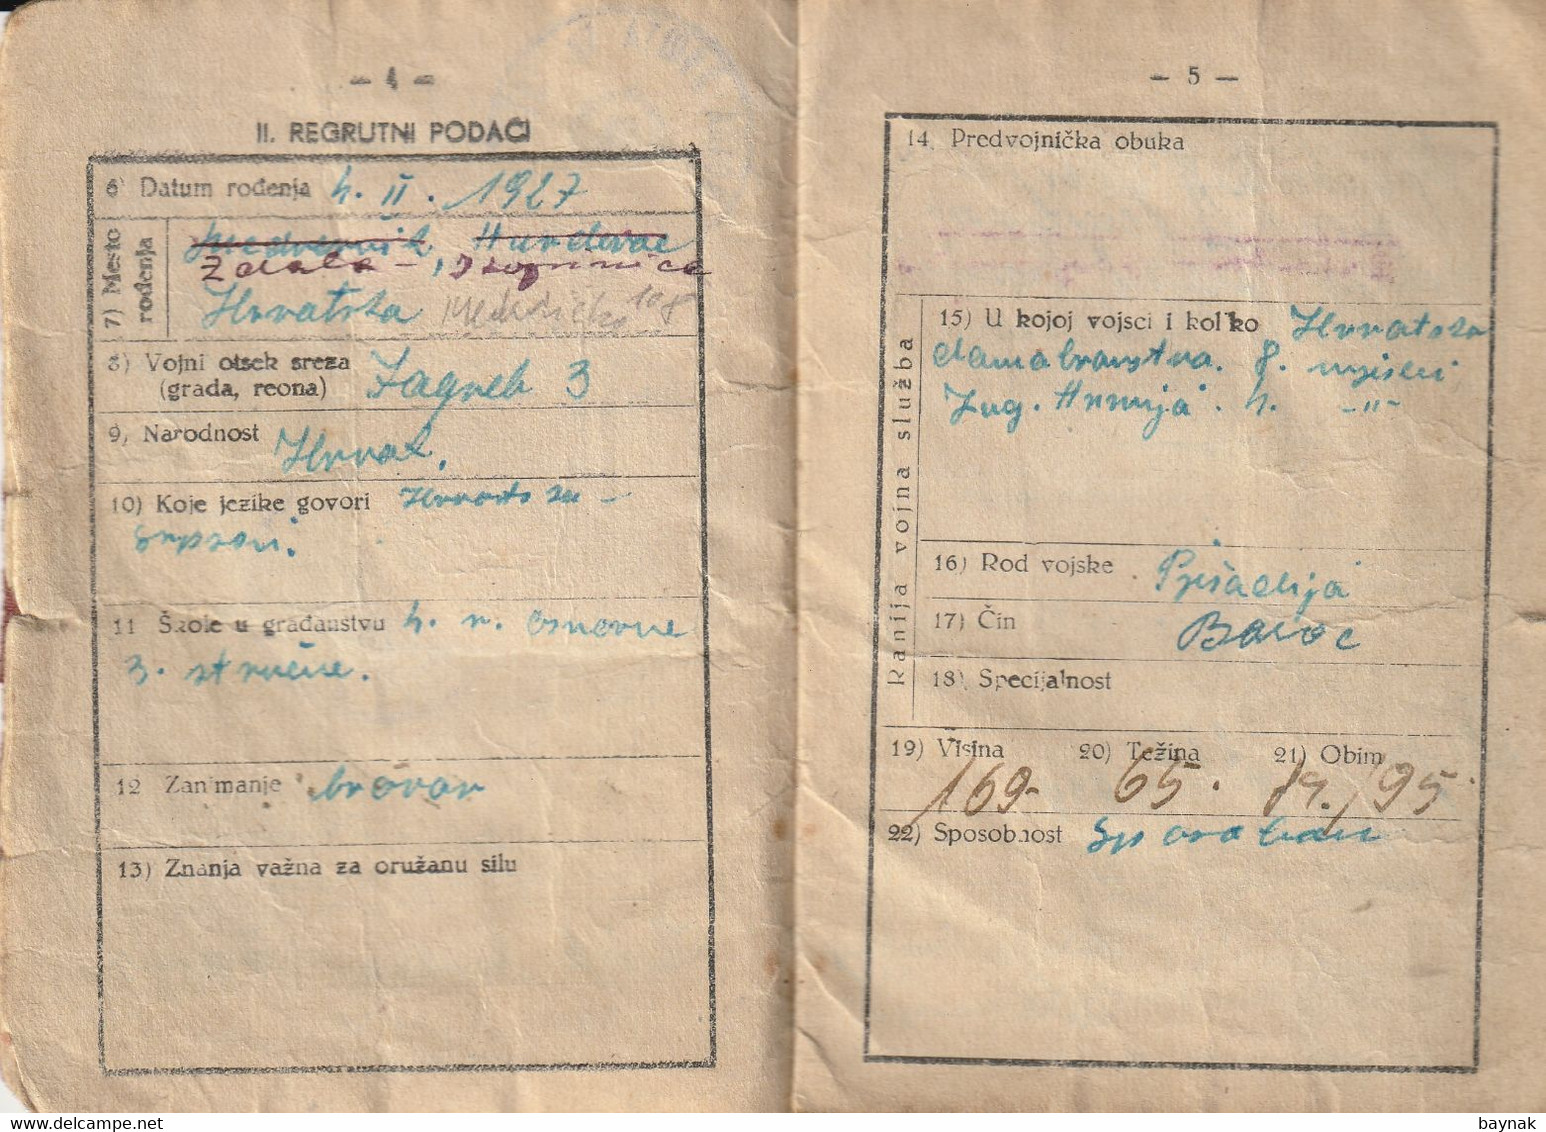 — 4 —
II. REGRUTNI PODACI
6) Datum rođenja 4. II. 1927
7) Mesto rođenja
Zdala –,
Hrvatska 108
8) Vojni otsek sreza
(grada, reona) Zagreb 3
9) Narodnost Hrvat.
10) Koje jezike govori Hrvatski –
srpski.
11 Škole u građanstvu 4. r. osnovne
3. stručne.
12 Zanimanje bravar
13) Znanja važna za oružanu silu
— 5 —
14. Predvojnička obuka
Ranija vojna služba
15) U kojoj vojsci i kol'ko Hrvatsko
domobranstvo. 8. mjeseci
Jug. Armija. 4. –"–
16) Rod vojske Pješadija
17) Čin Borac
18) Specijalnost
19) Visina 20) Težina 21) Obim
169- 65. /95
22) Sposobnost Sposoban
baynak